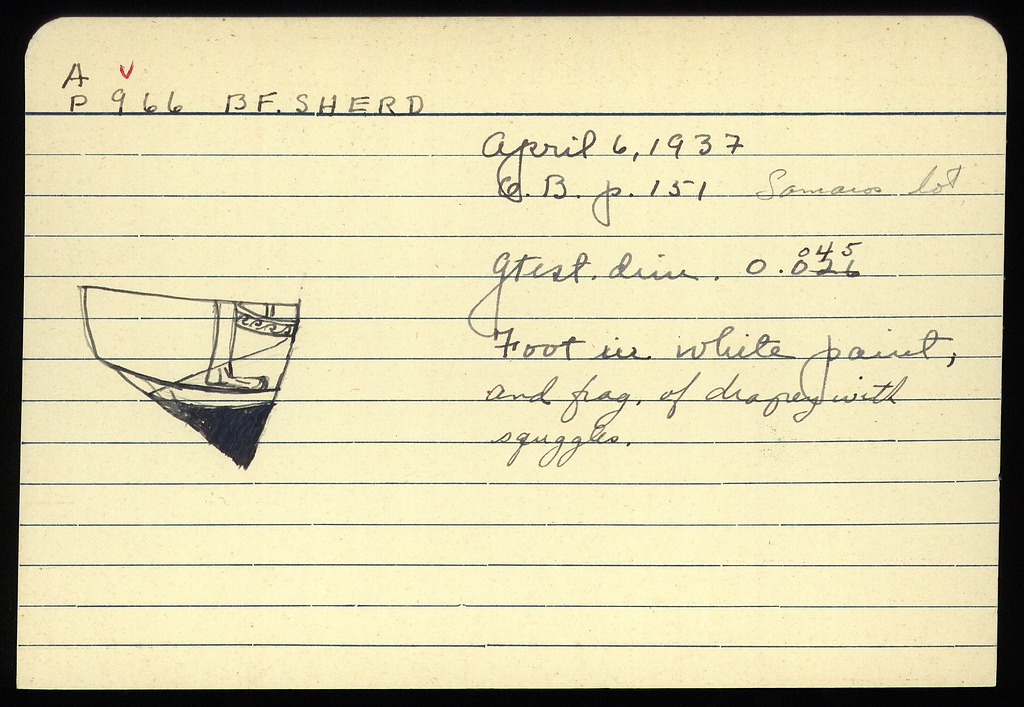 A v
P 966 BF. SHERD
April 6, 1937
C. B. p. 151 Samaras lot
gtest. dim. 0.026
045
Foot in white paint,
and frag. of drapey with
squggles.